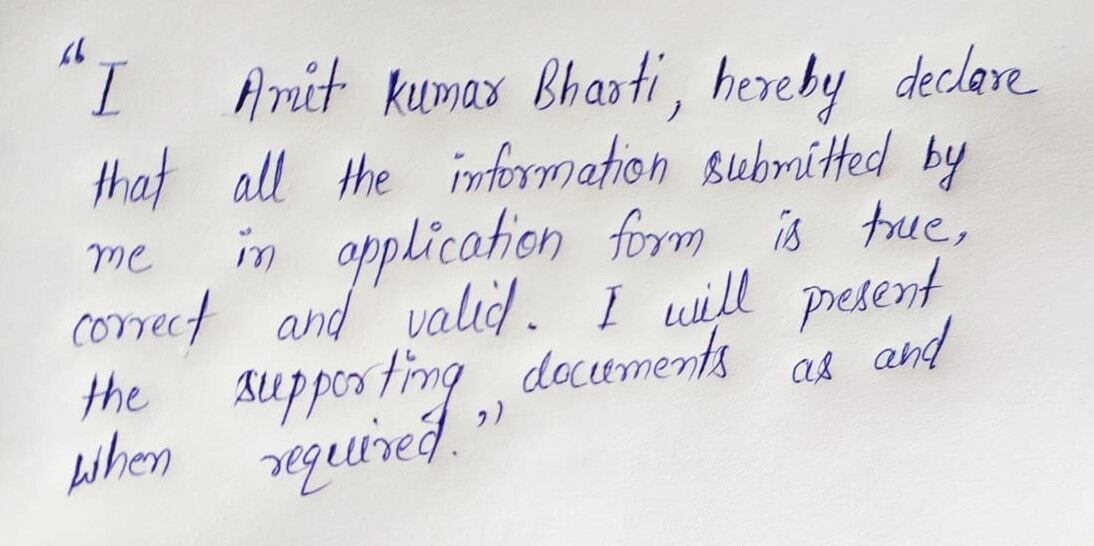 “I Amit Kumar Bharti, hereby declare
that all the information submitted by
me in application form is true,
correct and valid. I will present
the supporting documents as and
when required.”